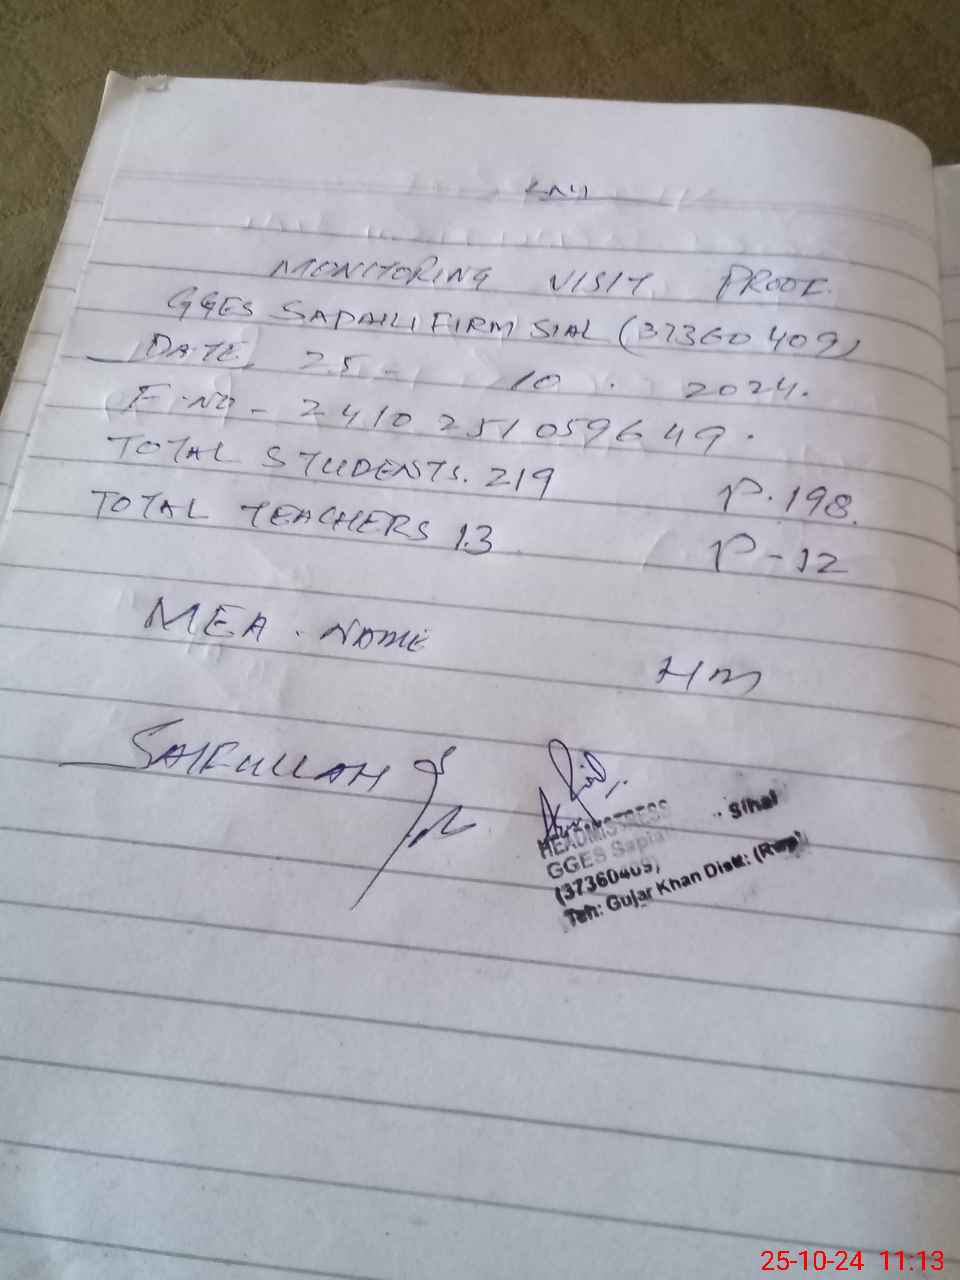 MONITORING VISIT PROOF
GGES SAPAILI FIRM SIAL (37360409)
DATE 25 - 10 . 2024.
F.NO - 2410251059649.
TOTAL STUDENTS. 219 P. 198.
TOTAL TEACHERS 13 P - 12
MEA . NAME
HM
SAIFULLAH
HEADMISTRESS
GGES Sihal
(37360409)
Teh: Gujar Khan Distt: (Rwp)
25-10-24 11:13